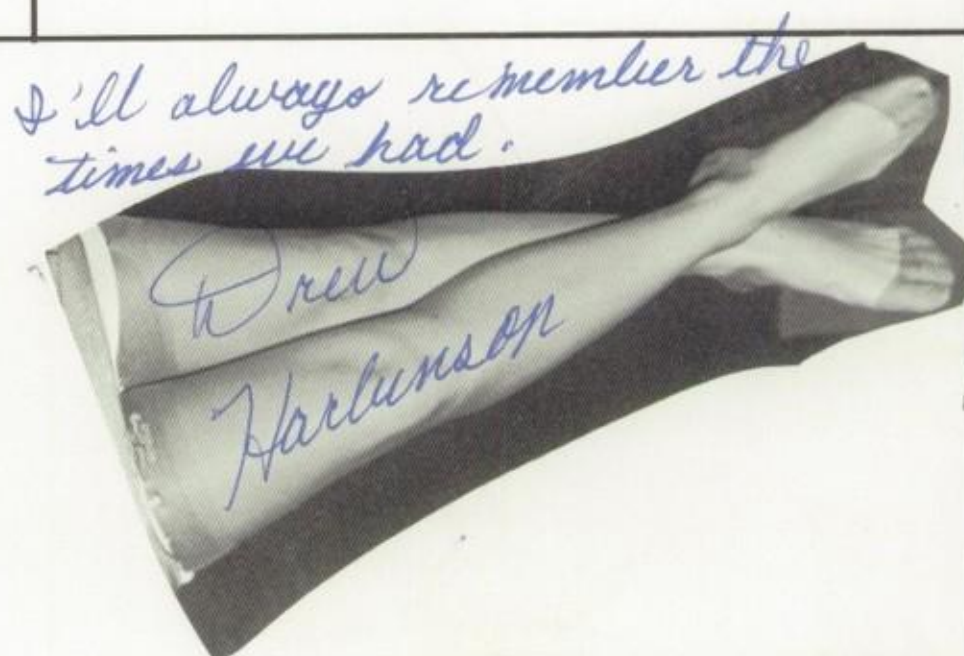 I'll always remember the
times we had.
Drew
Harbunson